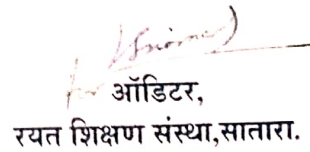 ऑडिटर,
रयत शिक्षण संस्था,सातारा.